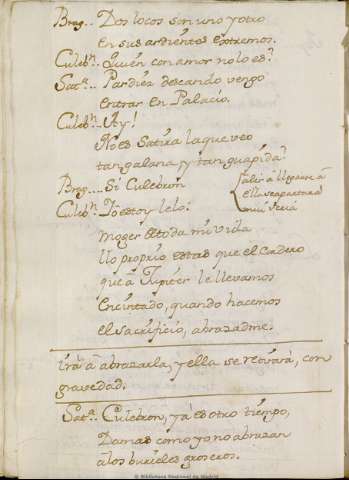 Brag.. Dos locos son uno y otro
en sus ardientes extremos.
Culebn. Quien con amor no lo es?
Satª.. Pardiez deseando vengo
entrar en Palacio.
Culebn. Ay!
No es Satira la que veo
tan galana y tan guapida?
Brag.... Si Culebron
Culebn. Yo estoy lelo:
moger de toda mi vida
llo proprio estas que el Cadero
que â Jupiter le llevamos
encintado, quando hacemos
el sacrificio, abrazadme.
irâ â abrazarla, y ella se retirarâ, con
gravedad.
Satª. Culebron, ya es otro tiempo,
Damas como yo no abrazan
a los burieles groseros.
© Biblioteca Nacional de Madrid